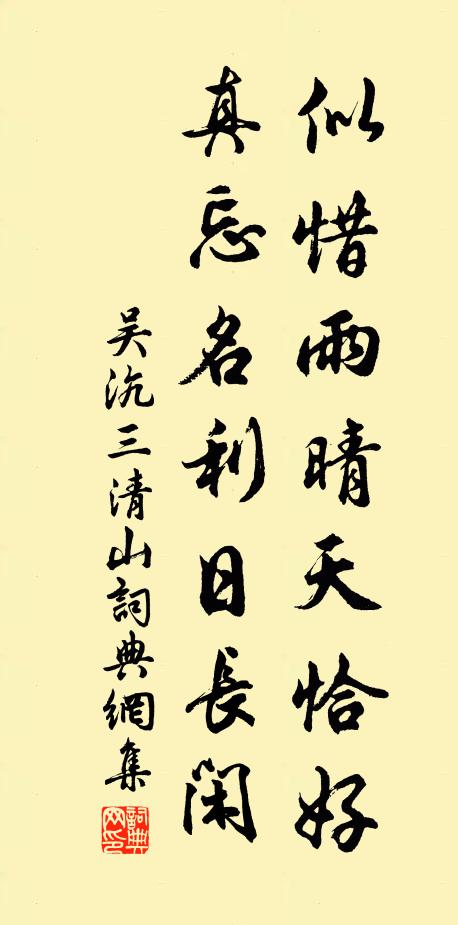 似惜雨晴天恰好
真忘名利日長閑
吴沆三清山詞典網集
詞典網印